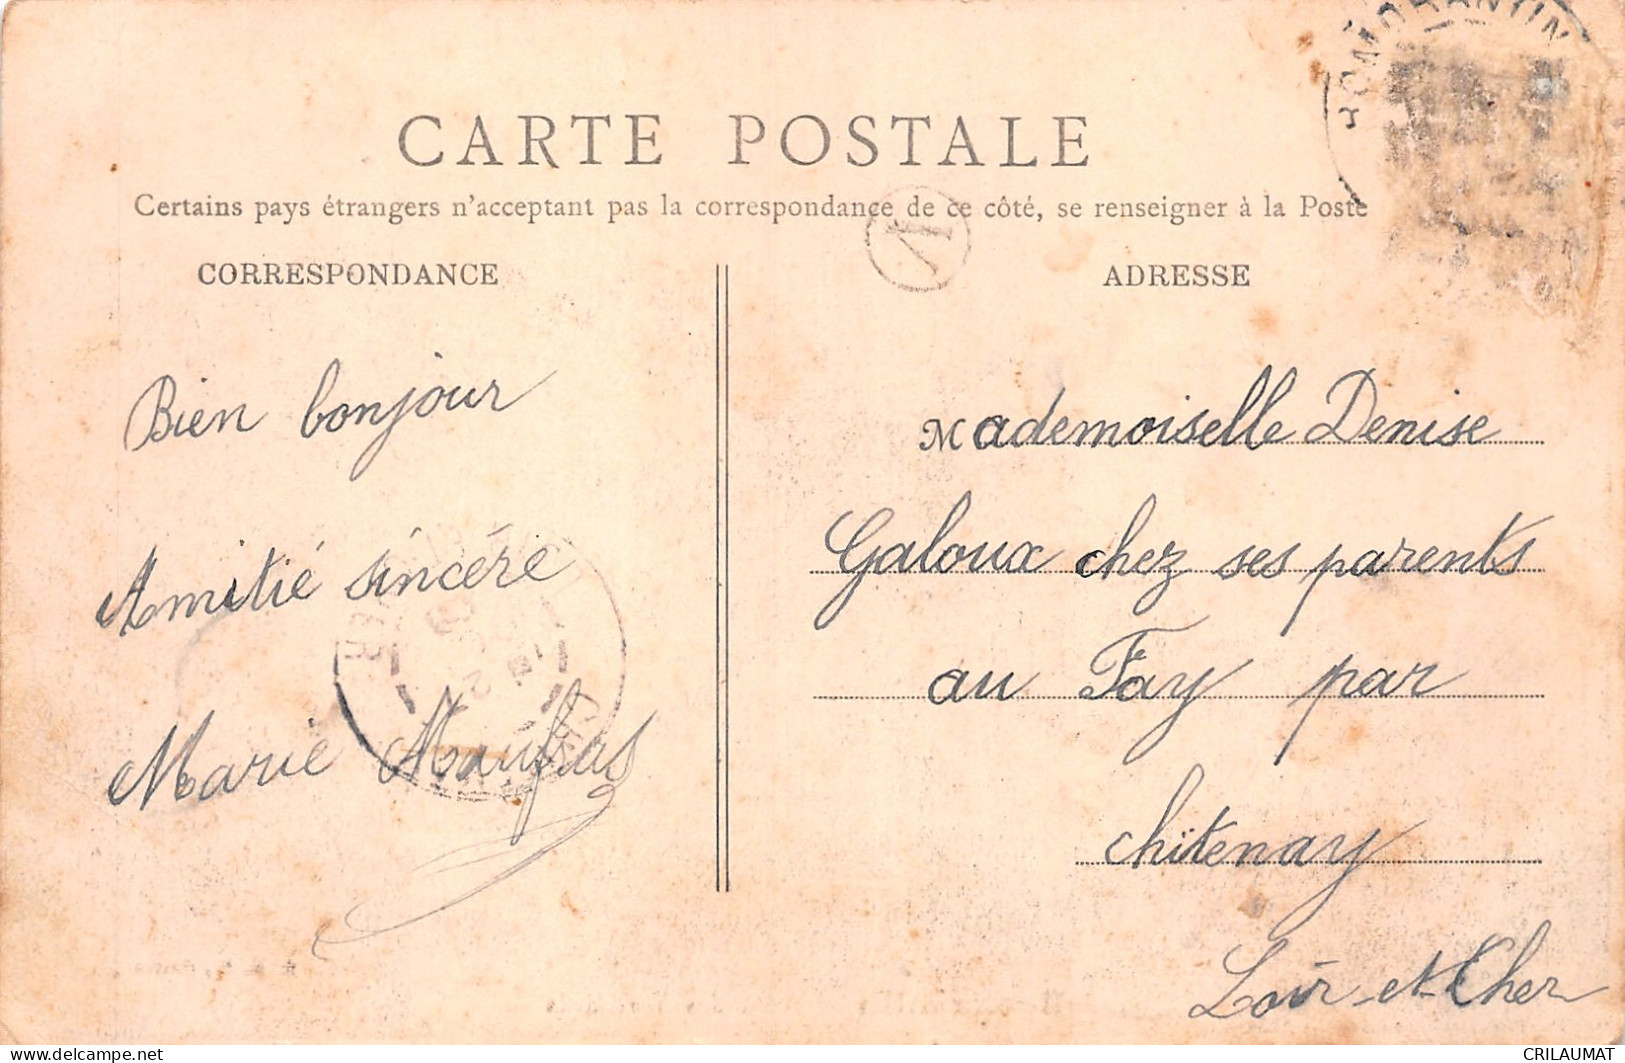 ROMORANTIN
CARTE POSTALE
Certains pays étrangers n'acceptant pas la correspondance de ce côté, se renseigner à la Poste
CORRESPONDANCE
Bien bonjour
Amitié sincère
Marie Maufras
ADRESSE
Mademoiselle Denise
Galoux chez ses parents
au Fay par
chitenay
Loir-et-Cher
delcampe.net
CRILAUMAT